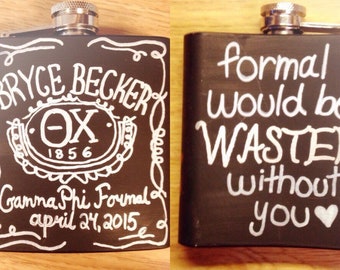 BRYCE BECKER
ΘΧ
1856
Gamma Phi Formal
april 24, 2015
formal
would be
WASTED
without
you♥